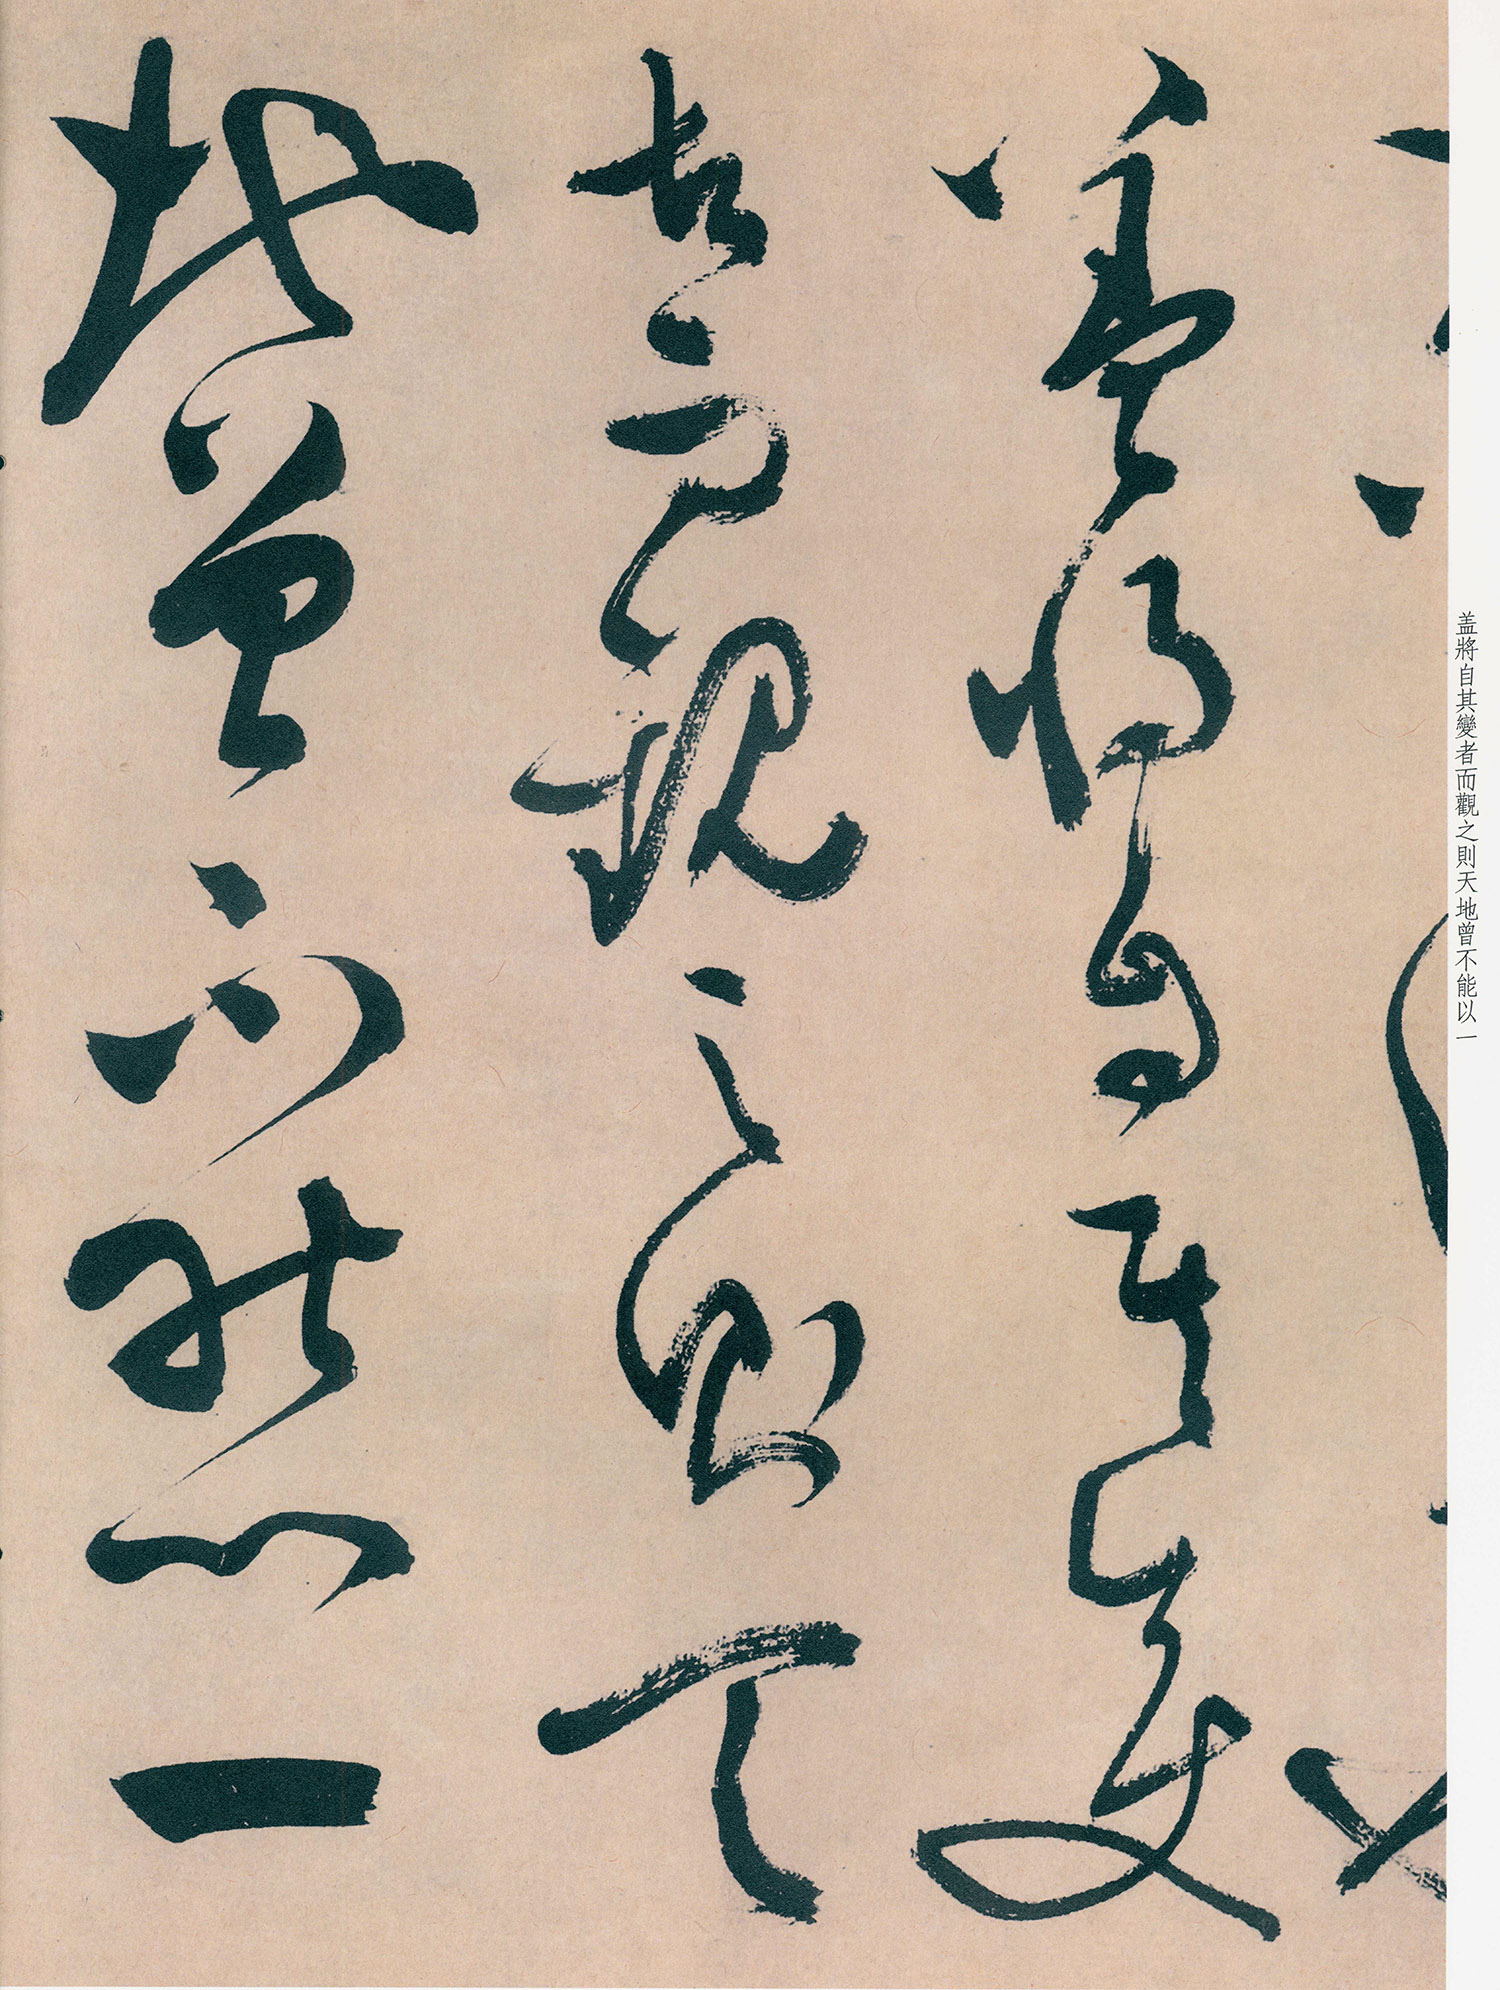 盖將自其變者而觀之則天地曾不能以一
盖將自其變
者而觀之則天
地曾不能以一